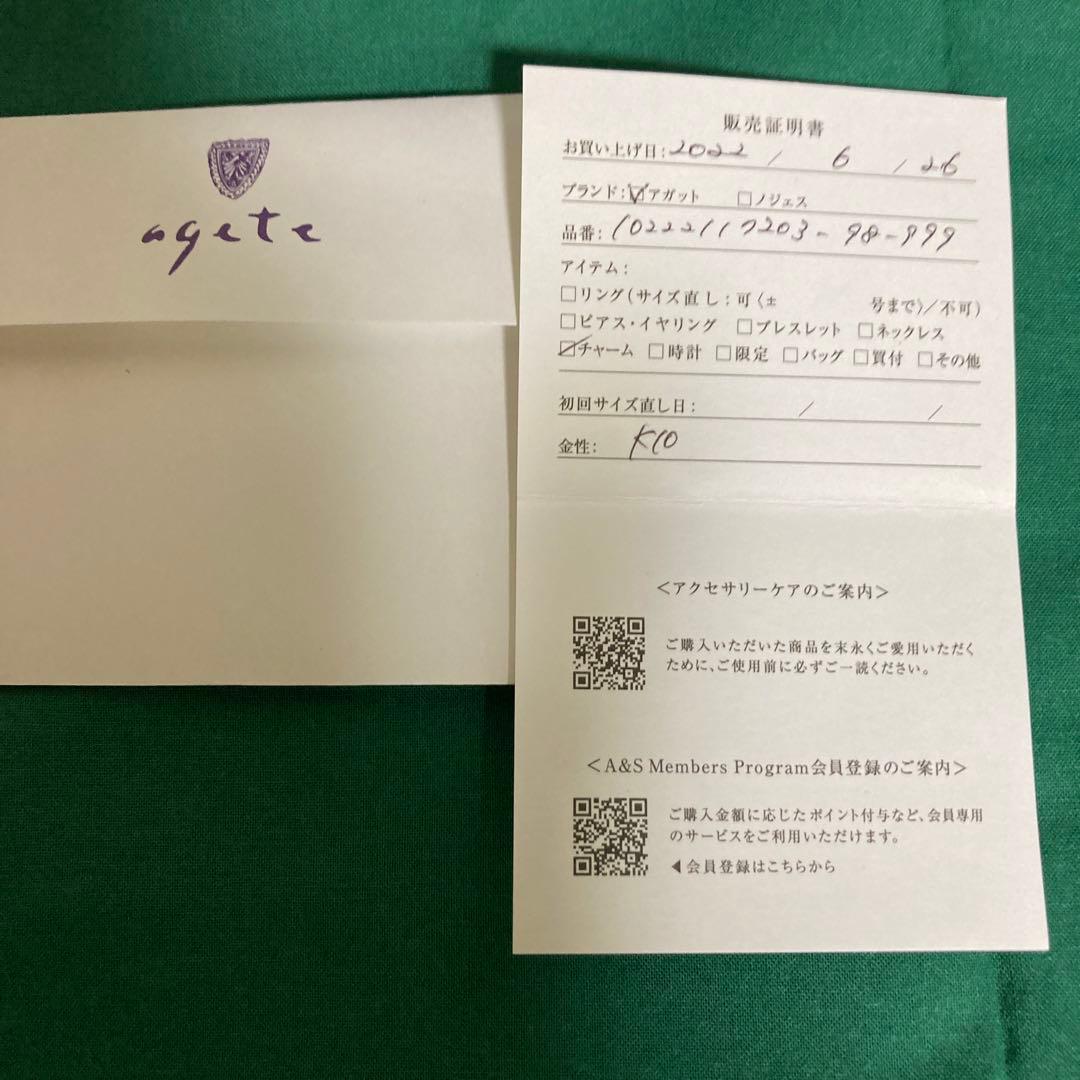 agete
販売証明書
お買い上げ日: 2022 / 6 / 26
ブランド: ☑アガット □ノジェス
品番: 10222117203-98-999
アイテム:
□リング(サイズ直し:可〈± 号まで〉/不可)
□ピアス・イヤリング □ブレスレット □ネックレス
☑チャーム □時計 □限定 □バッグ □買付 □その他
初回サイズ直し日: / /
金性: K10
<アクセサリーケアのご案内>
ご購入いただいた商品を末永くご愛用いただく
ために、ご使用前に必ずご一読ください。
<A&S Members Program会員登録のご案内>
ご購入金額に応じたポイント付与など、会員専用
のサービスをご利用いただけます。
◀会員登録はこちらから